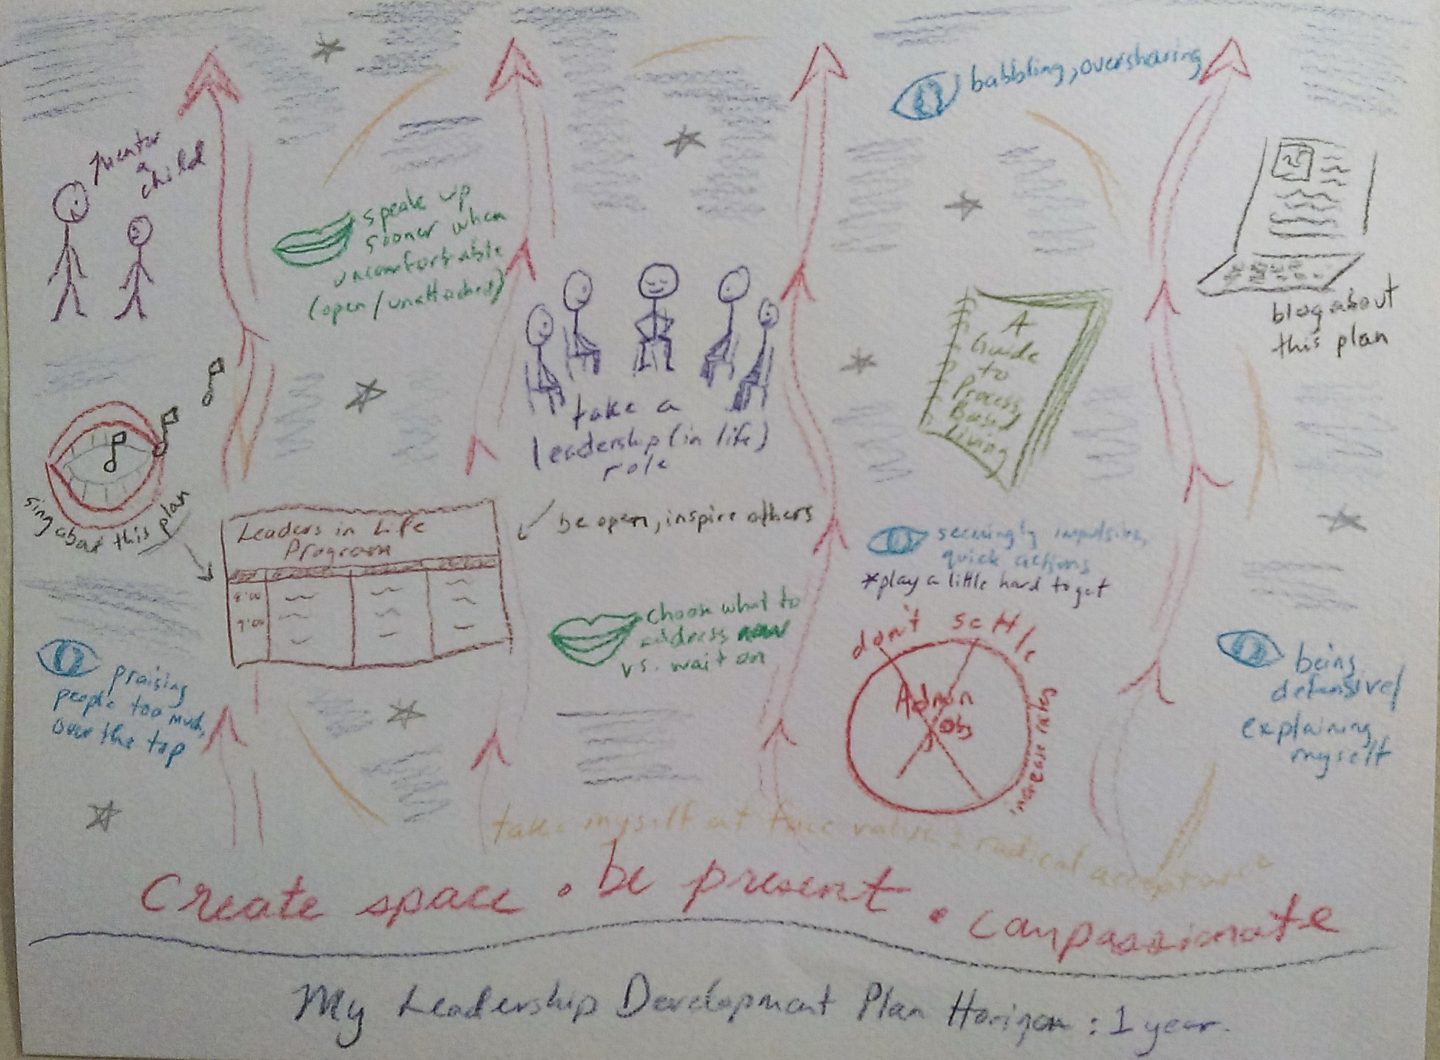 babbling, oversharing
mentor
a
child
speak up
sooner when
uncomfortable
(open/unattached)
take a
leadership (in life)
role
A
Guide
to
Process
Based
Living
blog about
this plan
sing about this plan
Leaders in Life
Program
8:00
9:00
be open, inspire others
seemingly impulsive,
quick actions
*play a little hard to get
choose what to
address now
vs. wait on
don't settle
Admin
jobs
increase rates
praising
people too much,
over the top
being
defensive/
explaining
myself
take myself at face value : radical acceptance
Create space . be present . compassionate
My Leadership Development Plan Horizon : 1 year.